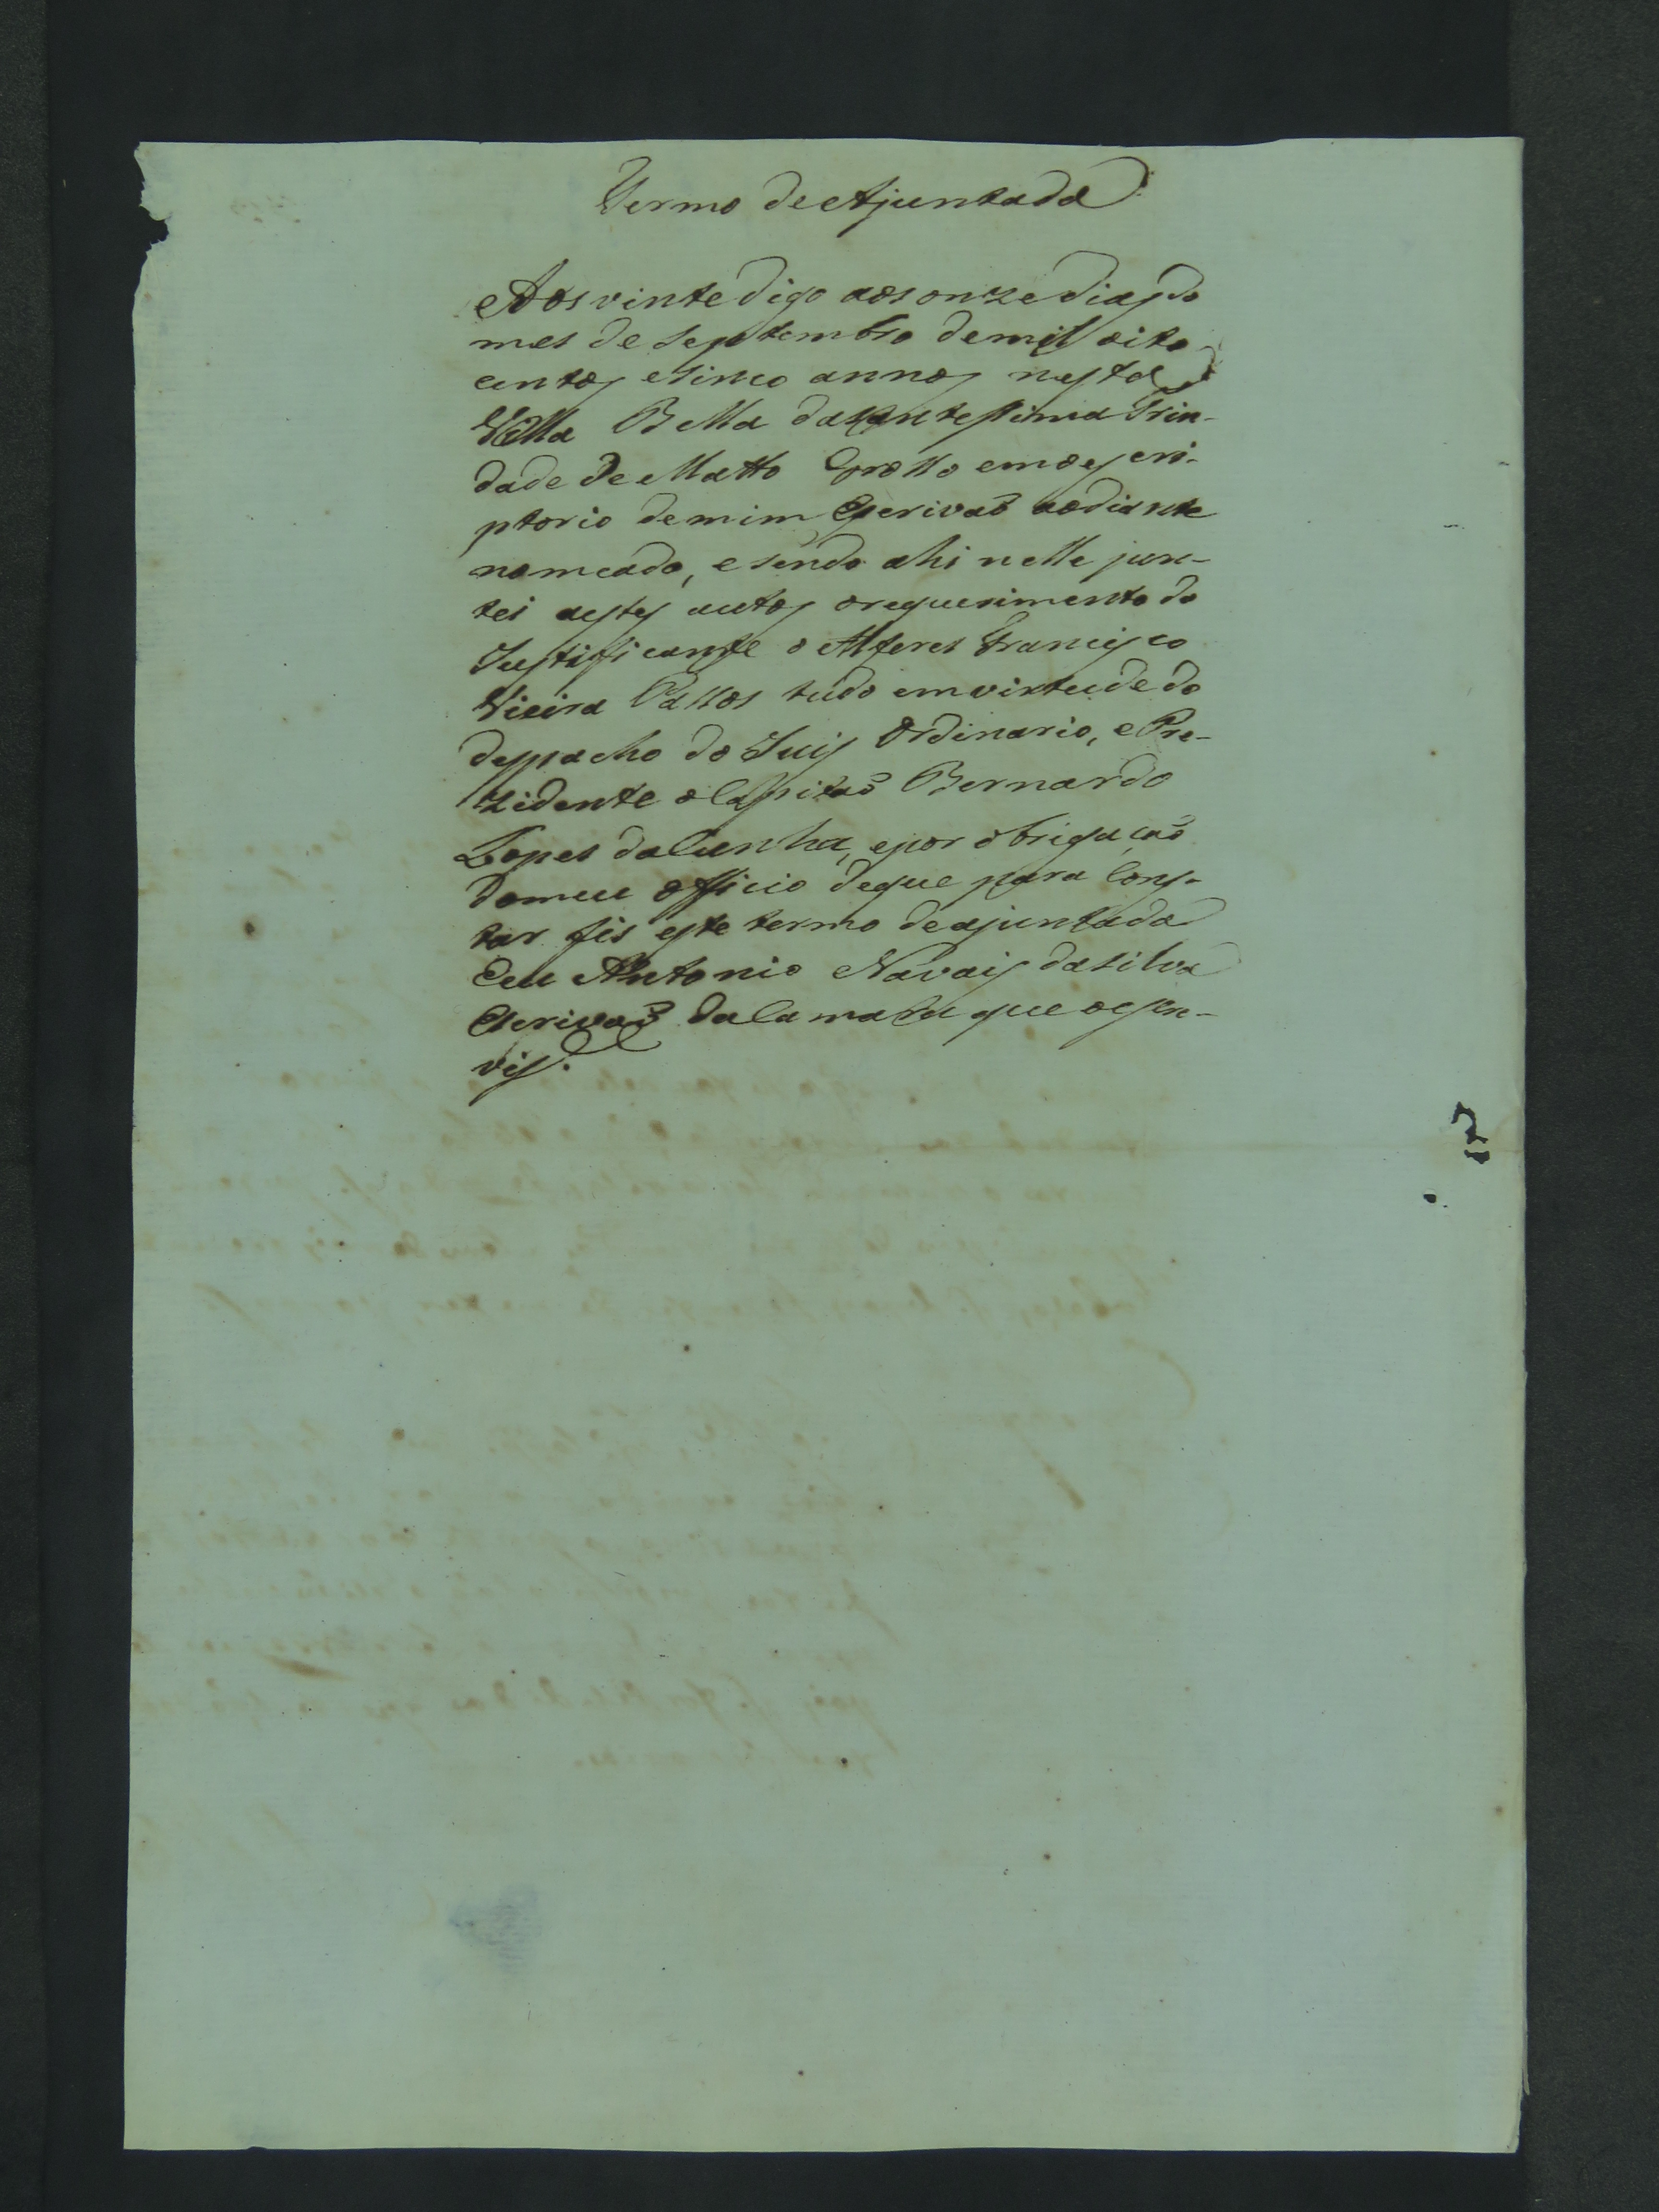 Termo de Ajuntada
Aos vinte digo aos onze dias do
mes de septembro de mil oito
centos e sinco annos nesta
Villa Bella da Santessima Trin-
dade de Matto Grosso em o escri-
ptorio de mim Escrivaõ aodiante
nomeado, e sendo ahi nelle jun-
tei a estes autos o requerimento do
Justificante o Alferes Francisco
Vieira Passos tudo em virtude do
despacho do Juis Ordinario, e Pre-
zidente o Capitaõ Bernardo
Lopes da Cunha, e por obrigaçaõ
do meu officio de que para cons-
tar fis este termo de ajuntada
Eu Antonio Navais da Silva
Escrivaõ da Camara que o escre-
vis.